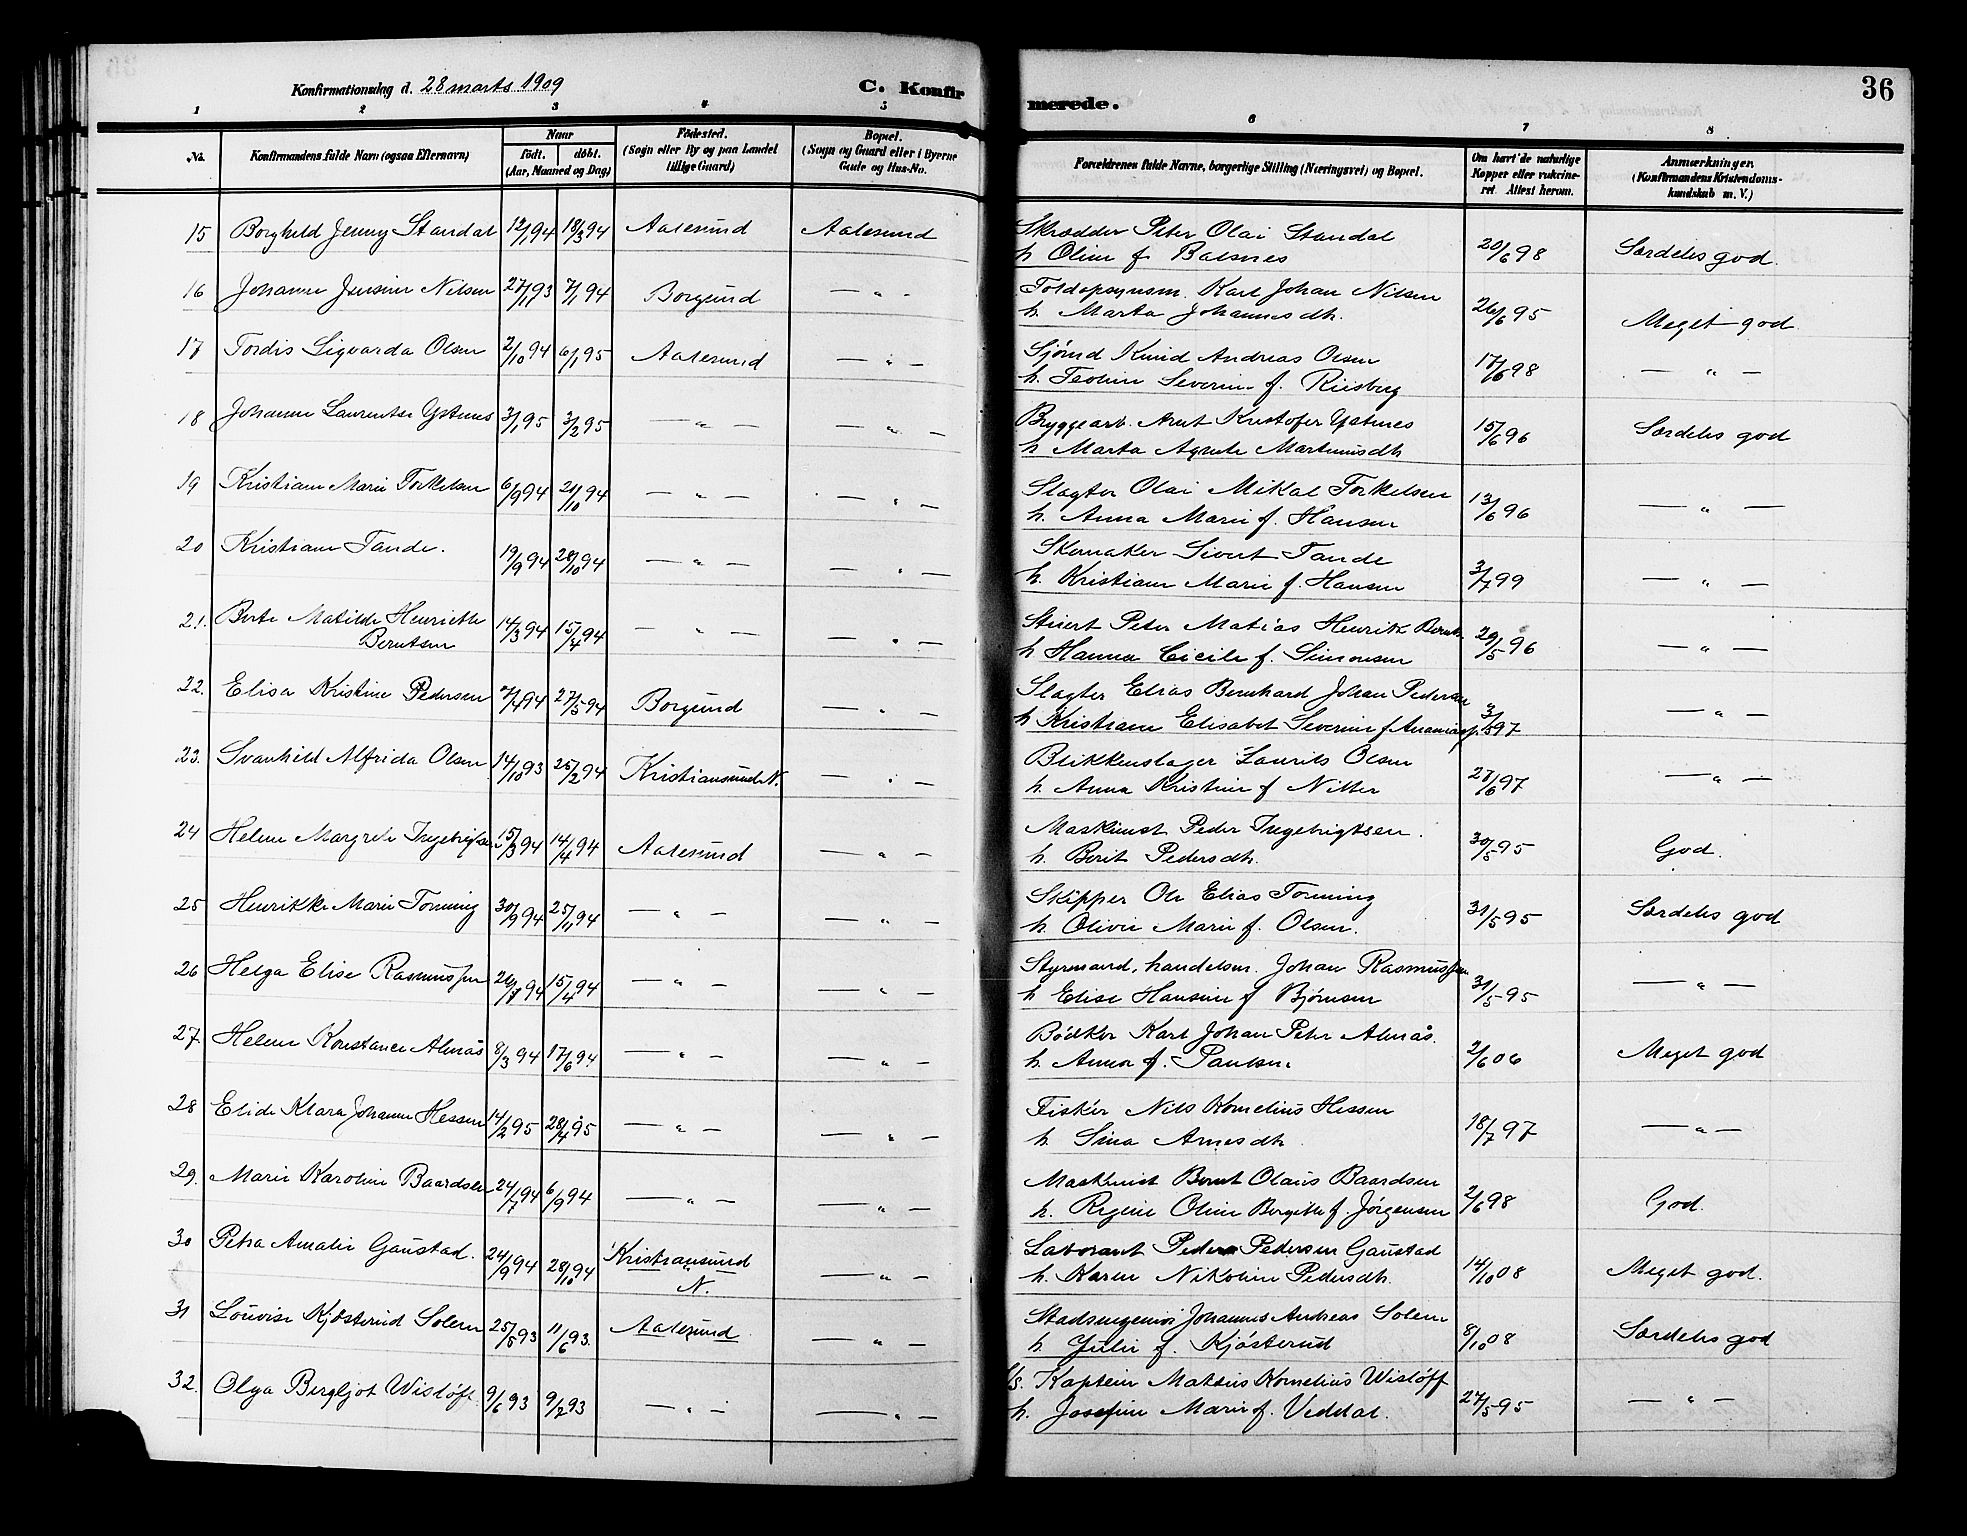 Konfirmationsdag d. 28 marts 1909
C. Konfirmerede.
36
1 2 3 4 5 6 7 8
No.
Konfirmandens fulde Navn (ogsaa Efternavn)
Naar
født. døbt.
(Aar, Maaned og Dag)
Fødested.
(Sogn eller By og paa Landet
tillige Gaard)
Bopæl.
(Sogn og Gaard eller i Byerne
Gade og Hus-No.
Forældrenes fulde Navne, borgerlige Stilling (Næringsvei) og Bopæl.
Om havt de naturlige
Kopper eller vakcine-
ret. Attest herom.
Anmærkninger.
(Konfirmandens Kristendoms-
kundskab m. V.)
15 Borghild Jenny Standal 12/1 94 18/3 94 Aalesund Aalesund Skrædder Peter Olai Standal 20/6 98 Særdeles god.
h Oline f Balsnes
16 Johanne Jensine Nilsen 27/11 93 7/1 94 Borgund — " - Toldopsynsm. Karl Johan Nilsen 26/6 95 Meget god.
h. Marta Johannesdh.
17 Tordis Sigvarda Olsen 2/10 94 6/1 95 Aalesund — " — Sjømd Knud Andreas Olsen 17/6 98 — " —
h. Teoline Severine f. Riisberg
18 Johanne Laurentse Ystenes 3/1 95 3/2 95 — " — — " — Bryggearb. Arnt Kristofer Ystnes 15/6 96 Særdeles god
h Marta Agnete Martinusdh
19 Kristiane Marie Torkelsen 6/9 94 21/10 94 — " — — " — Slagter Olai Mikal Torkelsen 13/6 96 — " —
h. Anna Marie f. Hansen
20 Kristiane Tande. 19/9 94 28/10 94 — " — — " — Skomaker Sivert Tande 3/7 99 — " —
h. Kristiane Marie f. Hansen
21. Berte Matilde Henriette 14/3 94 15/4 94 — " — — " — Stuert Peter Matias Henrik Bernts. 29/5 96 — " —
Berntsen h Hanna Cicile f. Simonsen
22. Elisa Kristine Pedersen 7/4 94 27/5 94 Borgund — " — Slagter Elias Bernhard Johan Pedersen 3/5 97 — " —
h Kristiane Elisabet Severine f
23. Svanhild Alfrida Olsen 14/10 93 25/2 94 Kristiansund N. — " — Blikkenslager Laurits Olsen 27/6 97 — " —
h. Anna Kristine f Nitter
24 Helene Margrete Ingebrigtsen 15/3 94 14/4 94 Aalesund — " — Maskinist Peder Ingebrigtsen. 30/5 95 God.
h. Berit Pedersdh.
25 Henrikke Marie Torning 30/9 94 25/11 94 — " — — " — Skipper Ole Elias Torning 31/5 95 Særdeles god
h. Olivie Marie f. Olsen.
26 Helga Elise Rasmussen 94 15/4 94 — " — — " — Styrmand, handelsm. Johan Rasmussen 31/5 95 — " —
h Elise Hansine f Bjørnsen
27. Helene Konstance Almås 8/3 94 17/6 94 — " — — " — Bødker Karl Johan Peter Almås. 2/6 06 Meget god
h. Anna f. Paulsen.
28 Elide Klara Johanne Hessen 14/2 95 28/4 95 — " — — " — Fisker Nils Kornelius Hessen 18/7 97 — " —
h. Sina Arnesdh.
29. Marie Karoline Baardsen 24/7 94 6/9 94 — " — — " — Maskinist Bernt Olaus Baardsen 2/6 98 God.
h. Regine Oline Bergitte f. Jørgensen
30 Petra Amalie Gaustad. 24/9 94 28/10 94 Kristiansund — " — Laborant Peder Pedersen Gaustad 14/10 08 Meget god.
N. h. Karen Nikoline Pedersdh.
31 Louise Kjøsterud Solem 25/5 93 11/6 93. Aalesund — " — Stadsingeniør Johannes Andreas Solem 8/10 08 Særdeles god
h Julie f. Kjøsterud
32. Olga Bergljot Wisløff 9/6 93 9/7 93 — " — — " — Kaptein Matius Kornelius Wisløff 27/5 95 — " —
h. Josefine Marie f. Veddal.